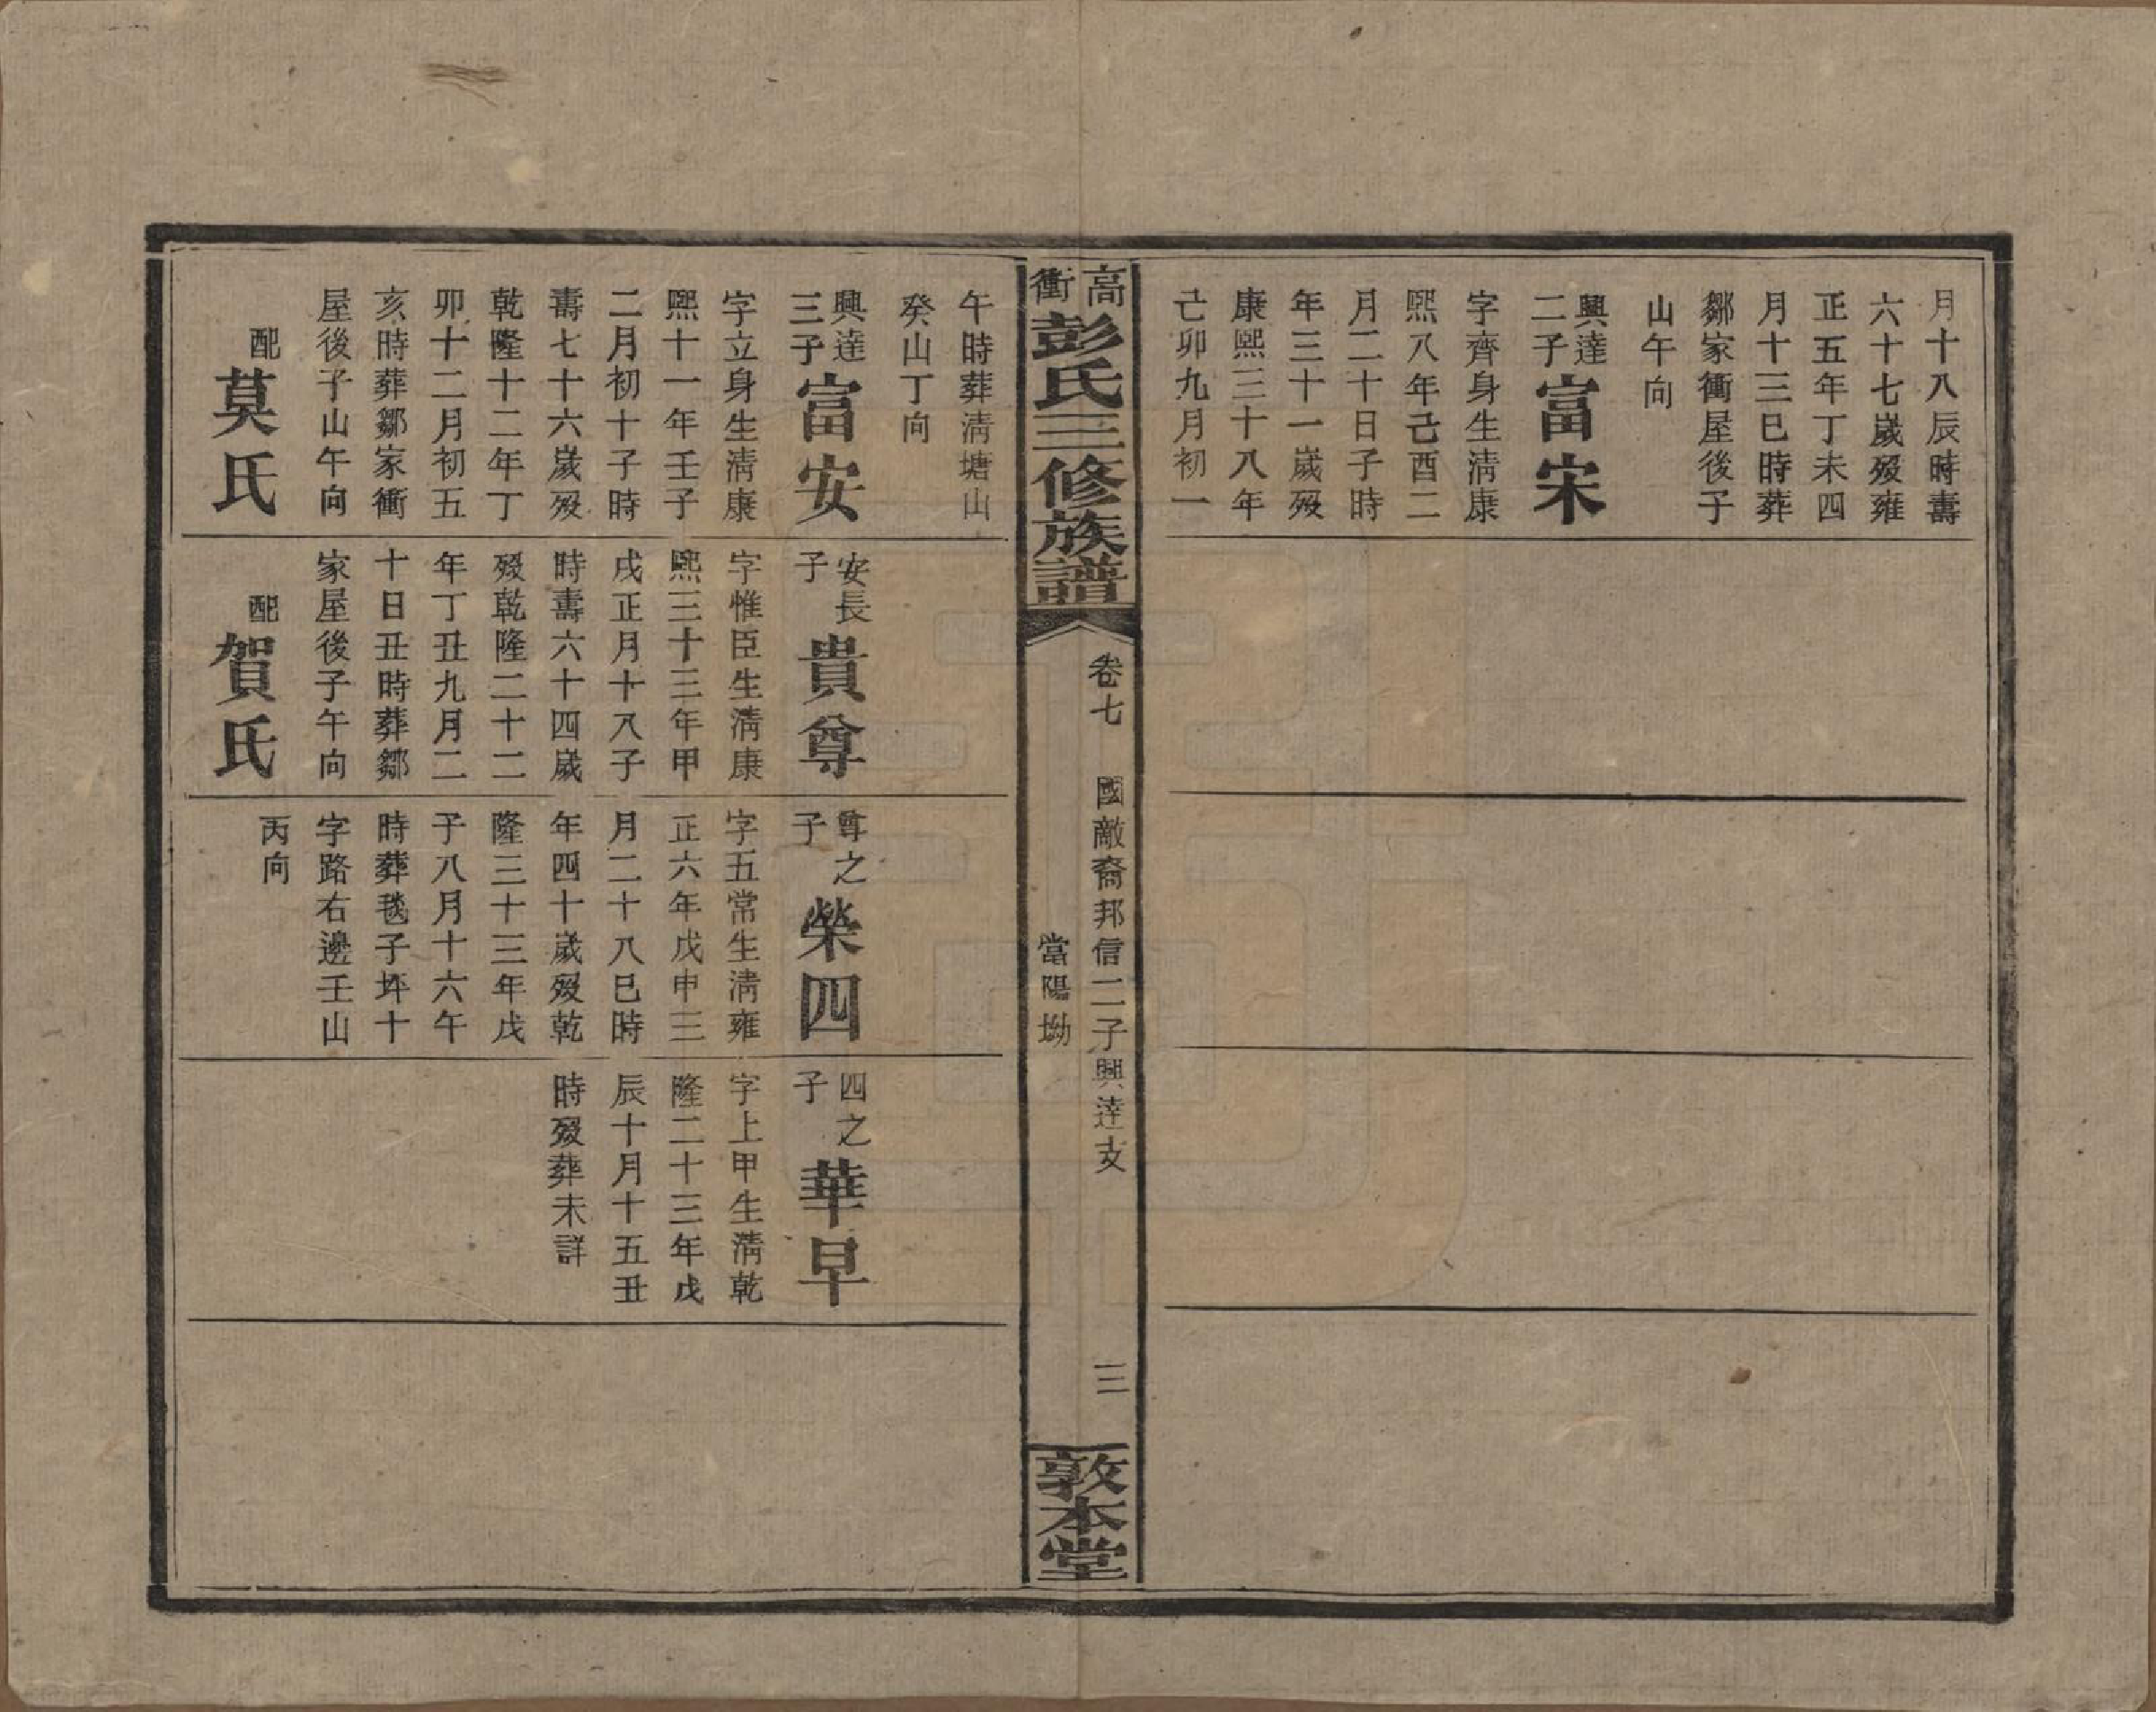 月十八辰時壽
六十七歲歿雍
正五年丁未四
月十三巳時葬
鄒家衝屋後子
山午向
興達
二子
富宋
字齊身生清康
熙八年己酉二
月二十日子時
年三十一歲歿
康熙三十八年
己卯九月初一
高衝
彭氏三修族譜
卷七
國敵裔邦信二子興達支
當陽坳
三
敦本堂
午時葬清塘山
癸山丁向
興達
三子
富安
字立身生清康
熙十一年壬子
二月初十子時
壽七十六歲歿
乾隆十二年丁
卯十二月初五
亥時葬鄒家衝
屋後子山午向
配
莫氏
安長
子
貴尊
字惟臣生清康
熙三十三年甲
戌正月十八子
時壽六十四歲
歿乾隆二十二
年丁丑九月二
十日丑時葬鄒
家屋後子午向
配
賀氏
尊之
子
榮四
字五常生清雍
正六年戊申三
月二十八巳時
年四十歲歿乾
隆三十三年戊
子八月十六午
時葬毯子坪十
字路右邊壬山
丙向
四之
子
華早
字上甲生清乾
隆二十三年戊
辰十月十五丑
時歿葬未詳